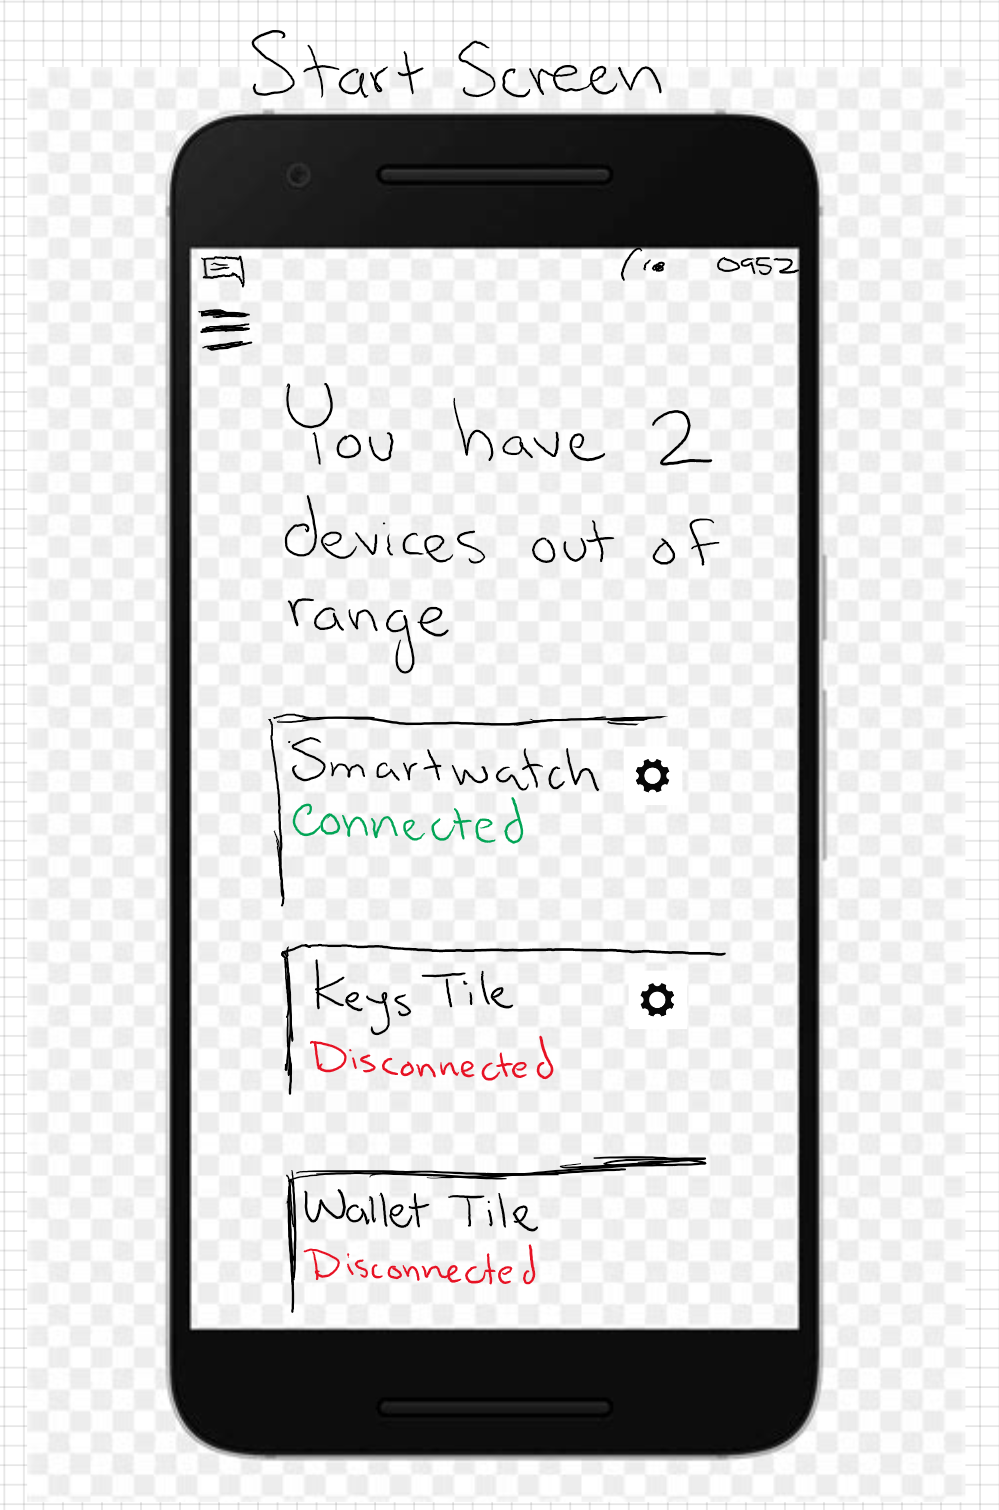 Start Screen
0952
You have 2
devices out of
range
Smartwatch
Connected
Keys Tile
Disconnected
Wallet Tile
Disconnected